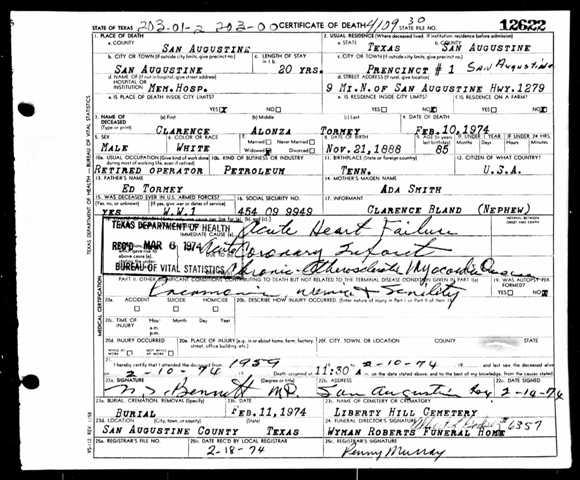 STATE OF TEXAS 203-01-2 203-00 CERTIFICATE OF DEATH 4109 30 STATE FILE NO. 12622
1. PLACE OF DEATH 2. USUAL RESIDENCE (Where deceased lived. If institution: residence before admission)
a. COUNTY SAN AUGUSTINE a. STATE TEXAS b. COUNTY SAN AUGUSTINE
b. CITY OR TOWN (If outside city limits, give precinct no.) c. LENGTH OF STAY in 1 b. c. CITY OR TOWN (If outside city limits, give precinct no.)
SAN AUGUSTINE 20 YRS. PRENCINCT # 1 San Augustine
d. NAME OF (If not in hospital, give street address) HOSPITAL OR INSTITUTION MEM.HOSP. d. STREET ADDRESS (If rural, give location) 9 MI.N.OF SAN AUGUSTINE HWY.1279
e. IS PLACE OF DEATH INSIDE CITY LIMITS? YES X NO e. IS RESIDENCE INSIDE CITY LIMITS? YES NO X f. IS RESIDENCE ON A FARM? YES NO X
3. NAME OF DECEASED (Type or print) (a) First (b) Middle (c) Last 4. DATE OF DEATH
CLARENCE ALONZA TORMEY FEB.10,1974
5. SEX 6. COLOR OR RACE 7. Married Never Married Widowed Divorced 8. DATE OF BIRTH 9. AGE (In years last birthday) IF UNDER 1 YEAR IF UNDER 24 HRS.
MALE WHITE NOV.21,1888 85
10a. USUAL OCCUPATION (Give kind of work done during most of working life, even if retired) 10b. KIND OF BUSINESS OR INDUSTRY 11. BIRTHPLACE (State or foreign country) 12. CITIZEN OF WHAT COUNTRY?
RETIRED OPERATOR PETROLEUM TENN. U.S.A.
13. FATHER'S NAME 14. MOTHER'S MAIDEN NAME
ED TORMEY ADA SMITH
15. WAS DECEASED EVER IN U.S. ARMED FORCES? 16. SOCIAL SECURITY NO. 17. INFORMANT
(Yes, no, or unknown) (If yes, give war or dates of service)
YES W.W.1 454 09 9949 CLARENCE BLAND (NEPHEW)
INTERVAL BETWEEN ONSET AND DEATH
TEXAS DEPARTMENT OF HEALTH
IMMEDIATE CAUSE (a) Acute Heart Failure
REC'D MAR 6 1974
Acute Coronary Infarct
BUREAU OF VITAL STATISTICS
Chronic
PART II. OTHER SIGNIFICANT CONDITIONS CONTRIBUTING TO DEATH BUT NOT RELATED TO THE TERMINAL DISEASE CONDITION GIVEN IN PART I(a) 19. WAS AUTOPSY PERFORMED? YES NO
Senility
20a. ACCIDENT SUICIDE HOMICIDE 20b. DESCRIBE HOW INJURY OCCURRED. (Enter nature of injury in Part I or Part II of item 18.)
20c. TIME OF INJURY Hour Month Day Year a.m. p.m.
20d. INJURY OCCURRED WHILE AT WORK NOT WHILE AT WORK 20e. PLACE OF INJURY (e.g. in or about home, farm, factory, street, office building, etc.) 20f. CITY, TOWN, OR LOCATION COUNTY STATE
21. I hereby certify that I attended the deceased from 1959 2-10-74
2-10-74 Death occurred at 11:30 A m. on the date stated above, and to the best of my knowledge, from the causes stated
22a. SIGNATURE (Degree or title) 22b. ADDRESS 22c. DATE SIGNED
Bennett M.D. San Augustine Tex 2-18-74
23a. BURIAL, CREMATION, REMOVAL (Specify) 23b. DATE 23c. NAME OF CEMETERY OR CREMATORY
BURIAL FEB.11,1974 LIBERTY HILL CEMETERY
23d. LOCATION (City, town, or county) (State) 24. FUNERAL DIRECTOR'S SIGNATURE
SAN AUGUSTINE COUNTY TEXAS WYMAN ROBERTS FUNERAL HOME 6357
25a. REGISTRAR'S FILE NO. 25b. DATE REC'D BY LOCAL REGISTRAR 25c. REGISTRAR'S SIGNATURE
2-18-74 Penny Murray
TEXAS DEPARTMENT OF HEALTH — BUREAU OF VITAL STATISTICS
MEDICAL CERTIFICATION
VS-112 REV. 1/58